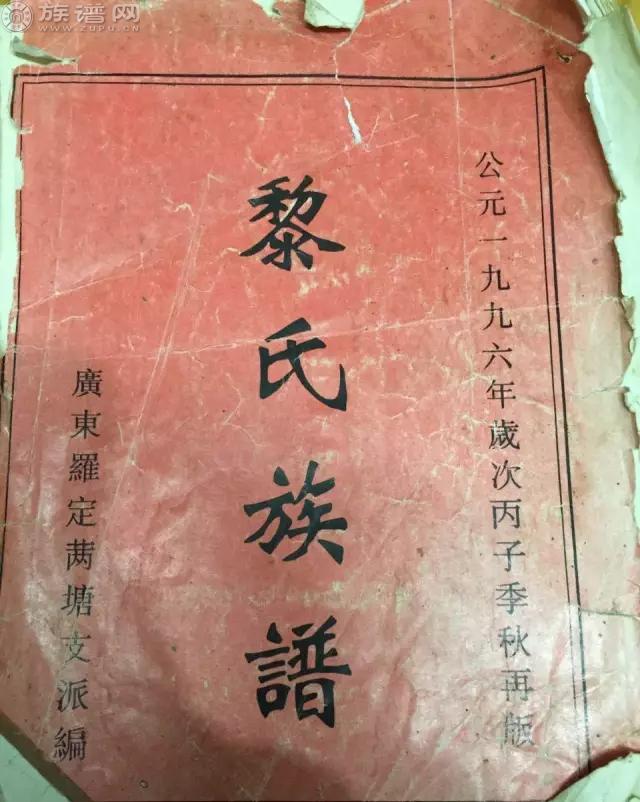 公元一九九六年歲次丙子季秋再版
黎氏族譜
廣東羅定苪塘支派編
族谱网
WWW.ZUPU.CN